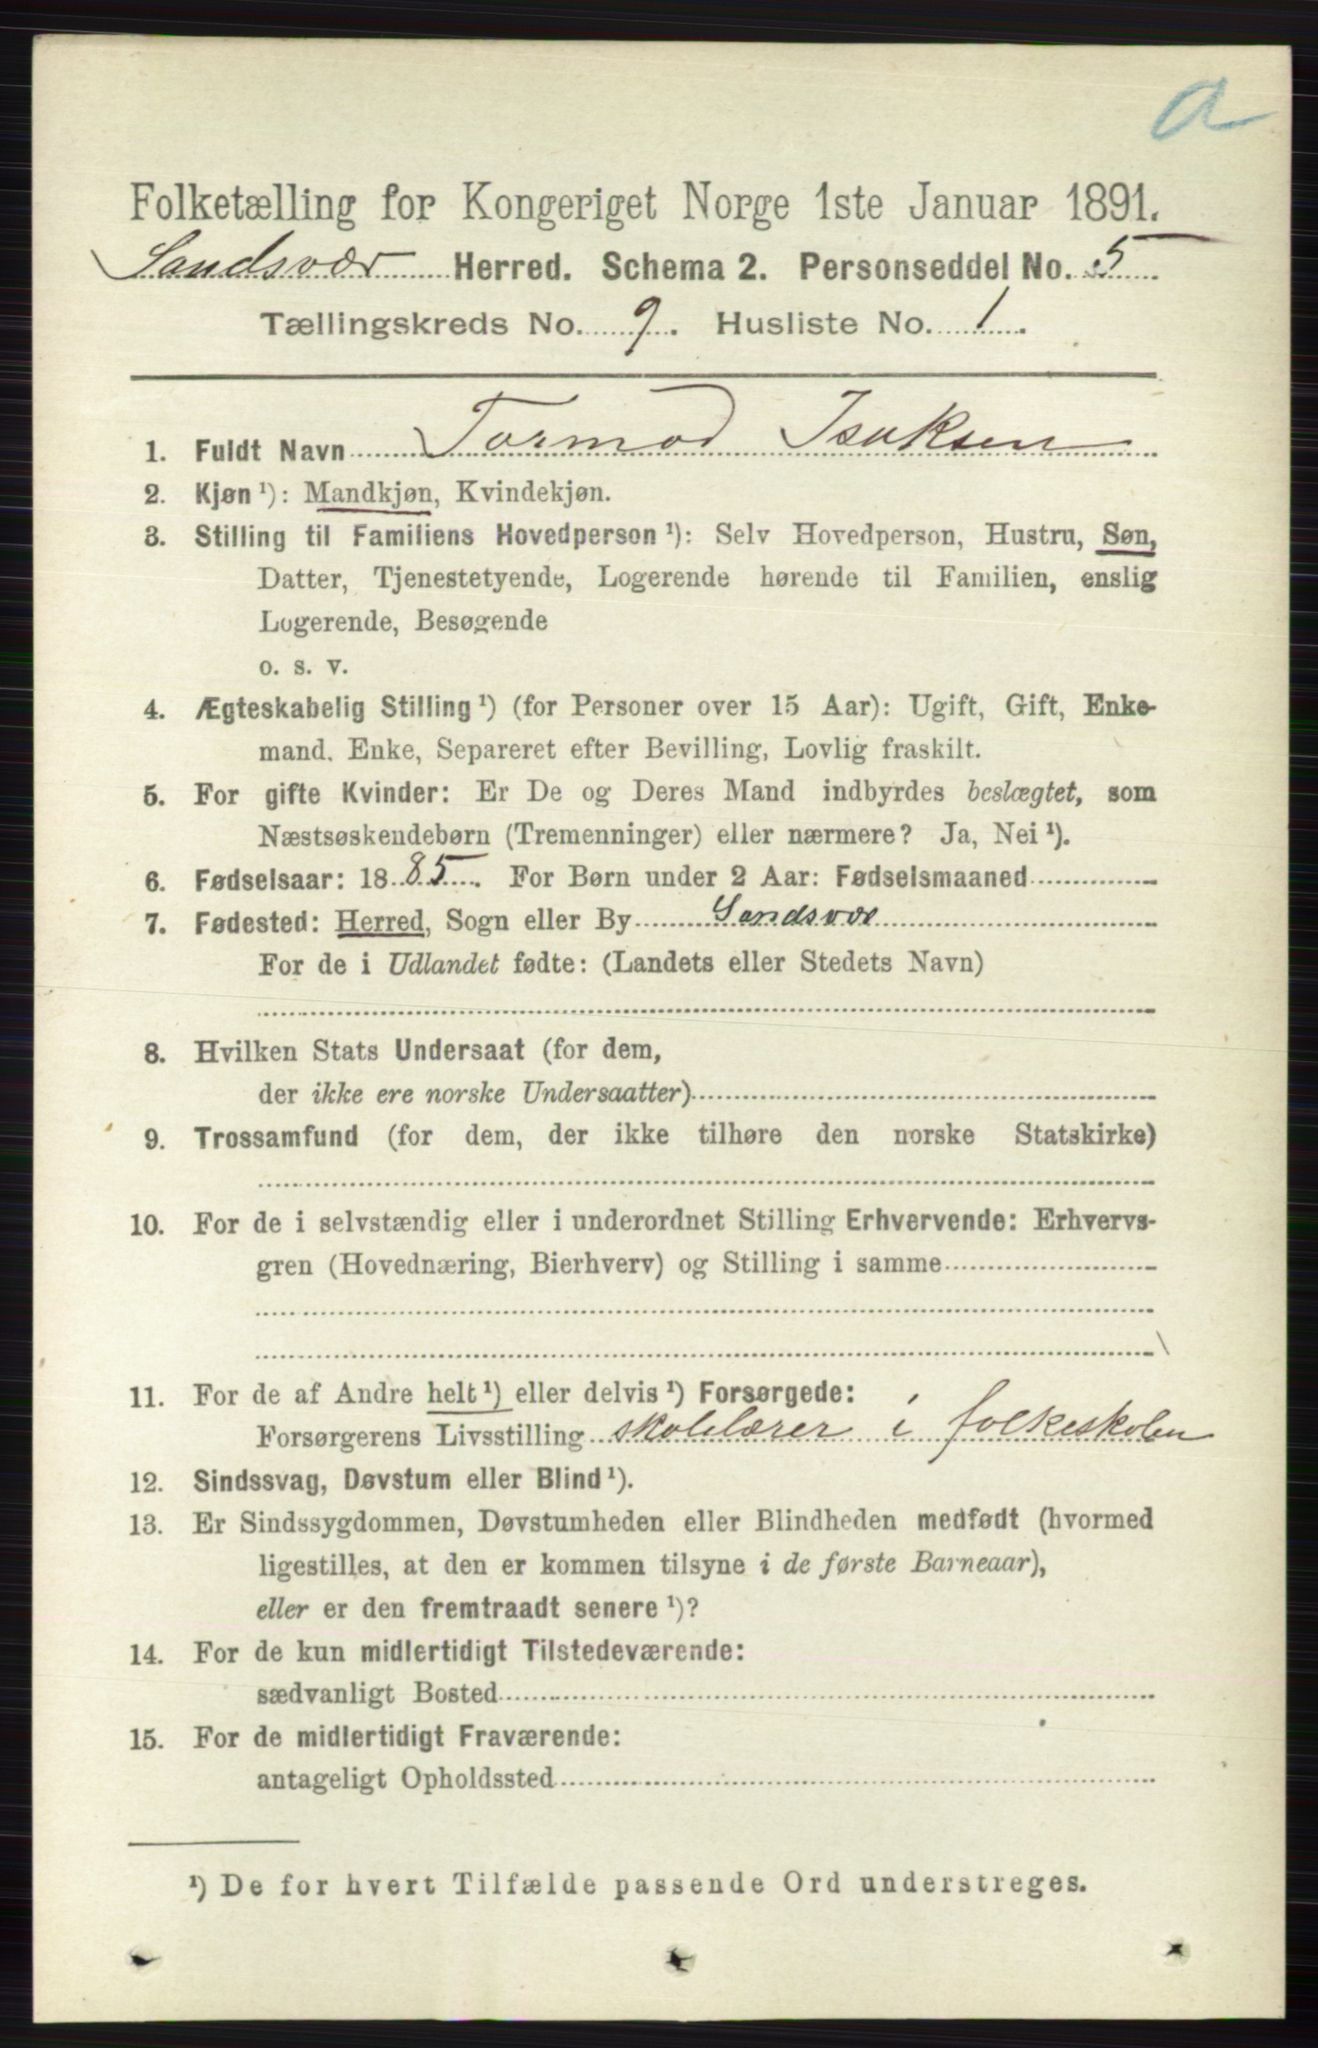 a
Folketælling for Kongeriget Norge 1ste Januar 1891.
Sandsvær Herred. Schema 2. Personseddel No. 5
Tællingskreds No. 9. Husliste No. 1.
1. Fuldt Navn Tormod Isaksen
2. Kjøn ¹): Mandkjøn, Kvindekjøn.
3. Stilling til Familiens Hovedperson ¹): Selv Hovedperson, Hustru, Søn,
Datter, Tjenestetyende, Logerende hørende til Familien, enslig
Logerende, Besøgende
o. s. v.
4. Ægteskabelig Stilling ¹) (for Personer over 15 Aar): Ugift, Gift, Enke-
mand. Enke, Separeret efter Bevilling, Lovlig fraskilt.
5. For gifte Kvinder: Er De og Deres Mand indbyrdes beslægtet, som
Næstsøskendebørn (Tremenninger) eller nærmere? Ja, Nei ¹).
6. Fødselsaar: 1885. For Børn under 2 Aar: Fødselsmaaned
7. Fødested: Herred, Sogn eller By Sandsvær
For de i Udlandet fødte: (Landets eller Stedets Navn)
8. Hvilken Stats Undersaat (for dem,
der ikke ere norske Undersaatter)
9. Trossamfund (for dem, der ikke tilhøre den norske Statskirke)
10. For de i selvstændig eller i underordnet Stilling Erhvervende: Erhvervs-
gren (Hovednæring, Bierhverv) og Stilling i samme
11. For de af Andre helt ¹) eller delvis ¹) Forsørgede:
Forsørgerens Livsstilling skolelærer i folkeskolen
12. Sindssvag, Døvstum eller Blind ¹).
13. Er Sindssygdommen, Døvstumheden eller Blindheden medfødt (hvormed
ligestilles, at den er kommen tilsyne i de første Barneaar),
eller er den fremtraadt senere ¹)?
14. For de kun midlertidigt Tilstedeværende:
sædvanligt Bosted
15. For de midlertidigt Fraværende:
antageligt Opholdssted
¹) De for hvert Tilfælde passende Ord understreges.